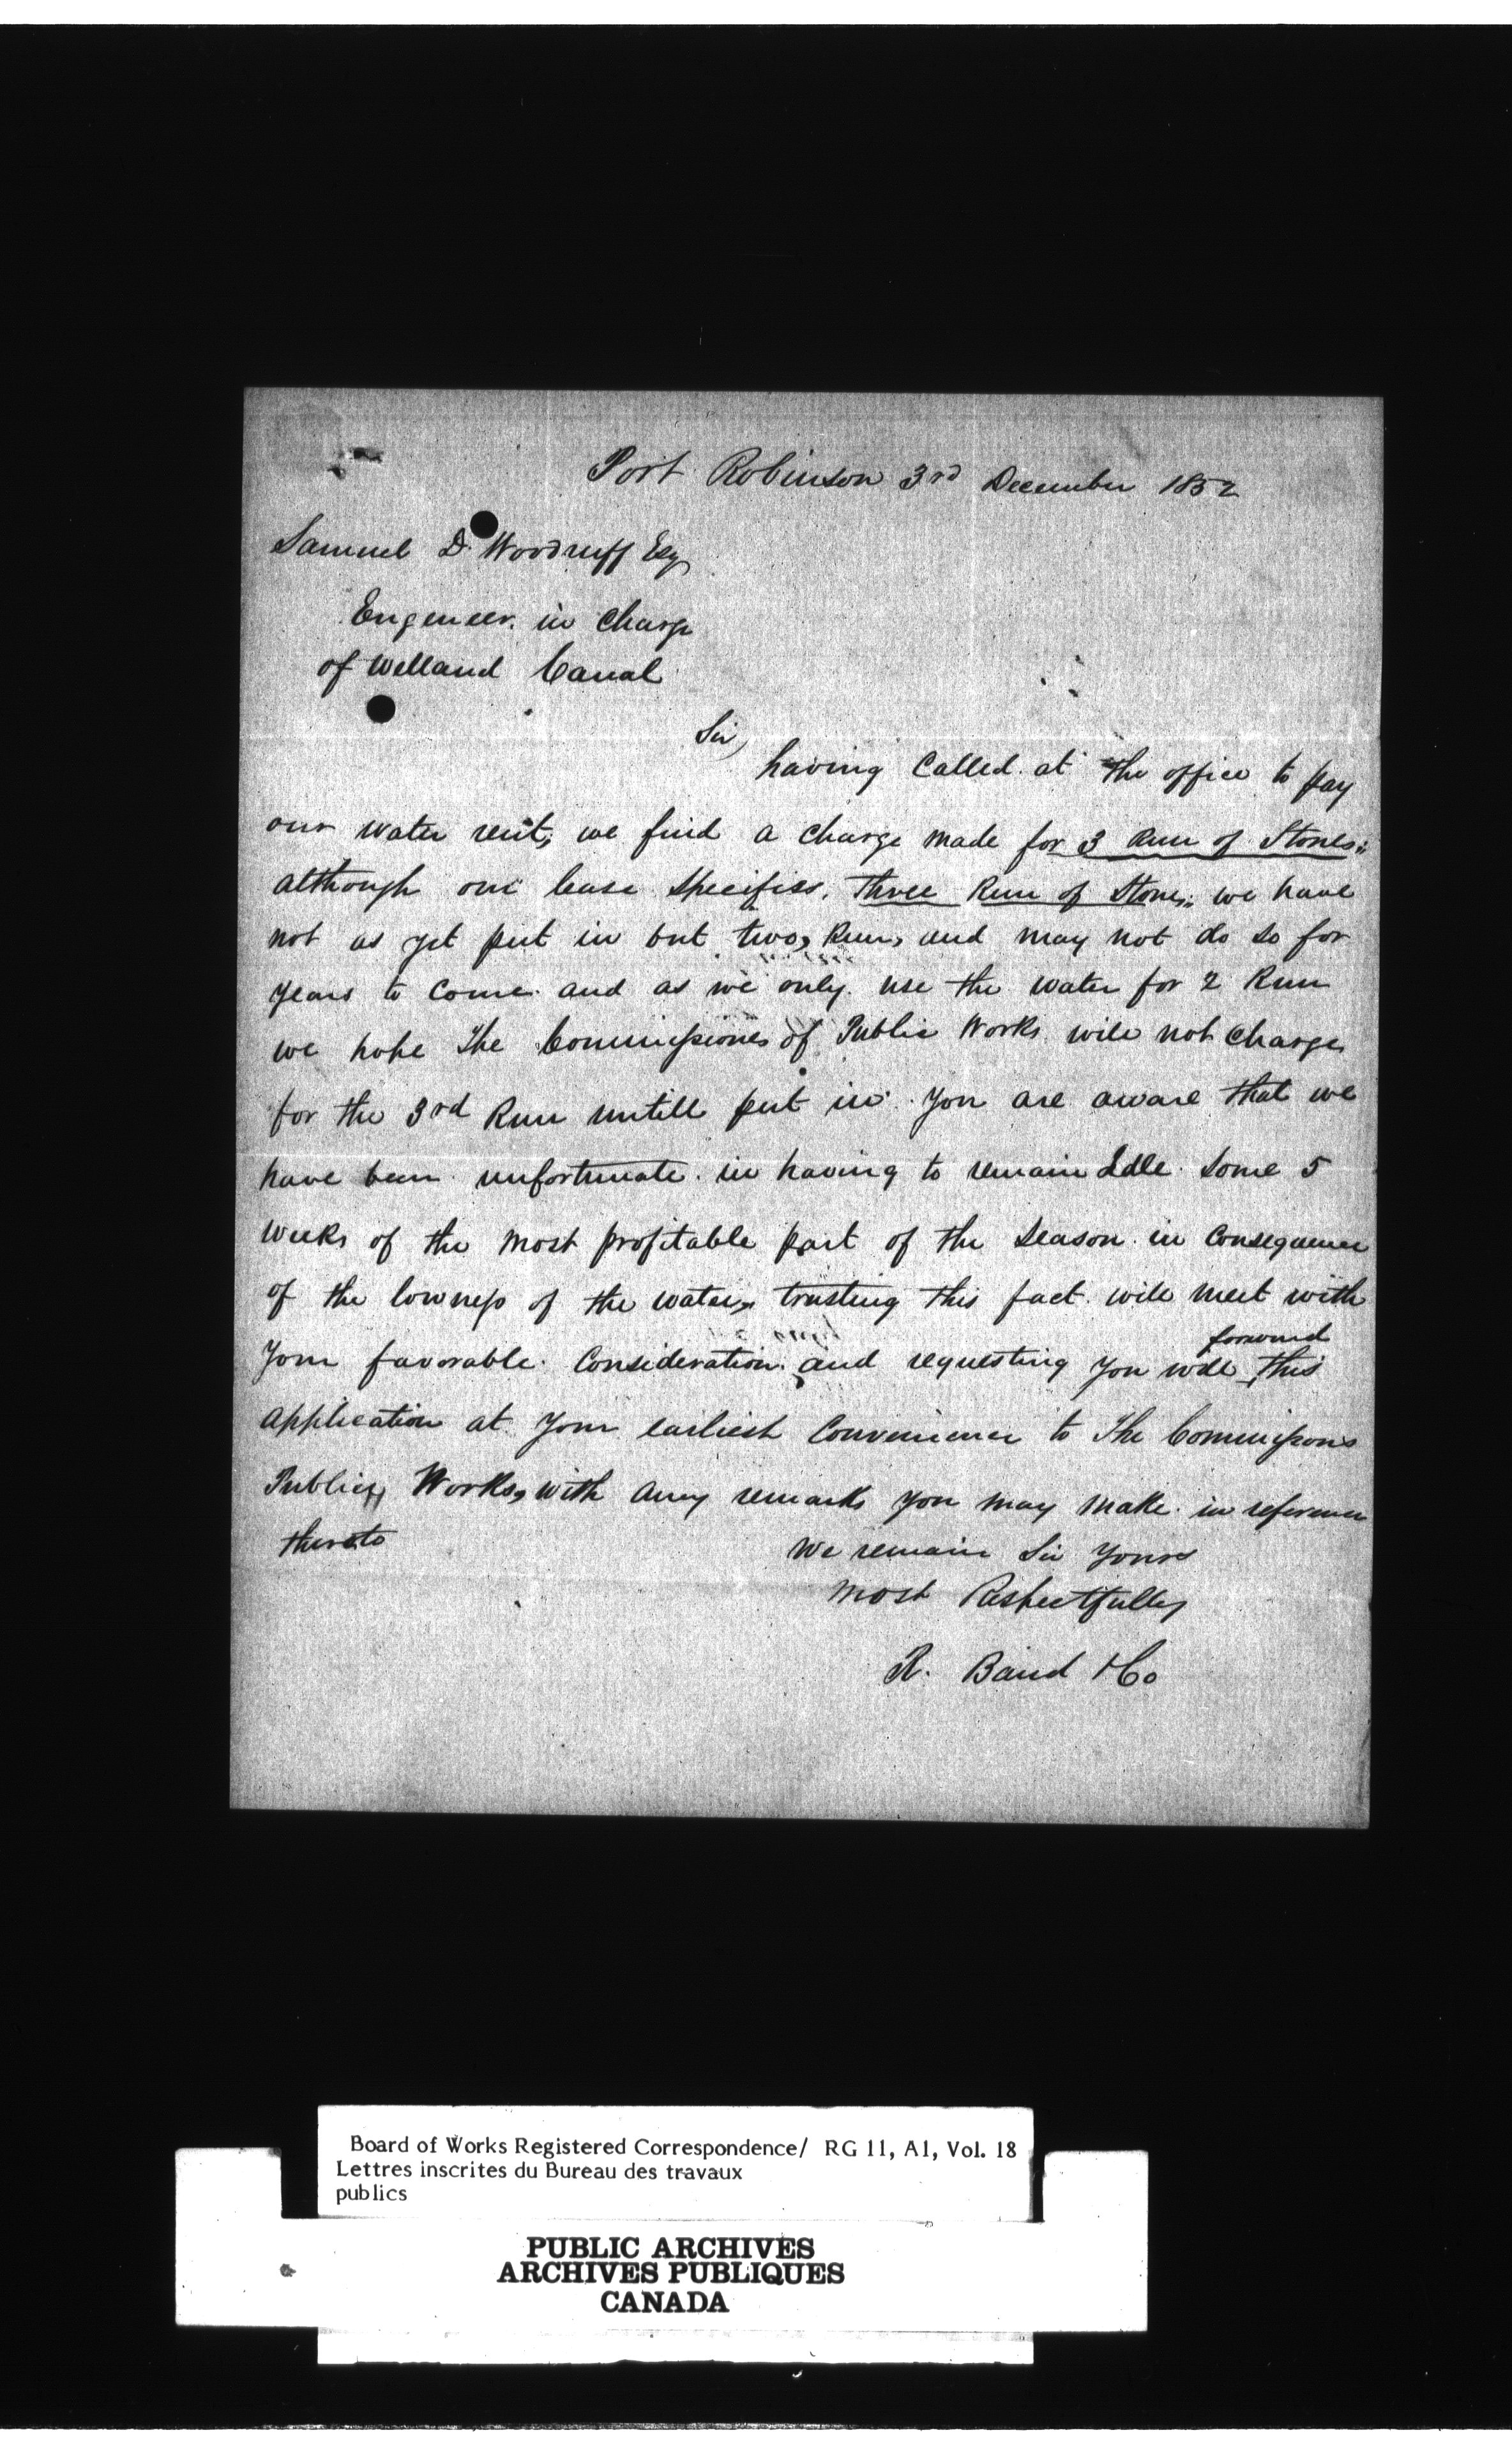 Port Robinson 3rd December 1852
Samuel D. Woodruff Esq
Engeneer in Charge
of Welland Canal
Sir,
having Called at the office to pay
our water rent, we find a Charge made for 3 Run of Stones,,
although our lease Specifiss, Three Run of Stones,, we have
not as yet put in but two, Run, and may not do so for
years to Come. and as we only use the water for 2 Run
we hope The Commissiones of Public Works will not Charge
for the 3rd Run untill put in. You are aware that we
have been unfortunate in having to remain Idle Some 5
weeks of the most profitable part of the Season in Consequence
of the lowness of the water, trusting this fact will meet with
your favorable Consideration, and requesting you will forward this
application at your earliest Convenience to The Commissons
Public Works, with any remarks you may make in reference
thereto
We remain Sir Yours
most Respectfully
R. Baird & Co
Board of Works Registered Correspondence/ RG 11, A1, Vol. 18
Lettres inscrites du Bureau des travaux
publics
PUBLIC ARCHIVES
ARCHIVES PUBLIQUES
CANADA